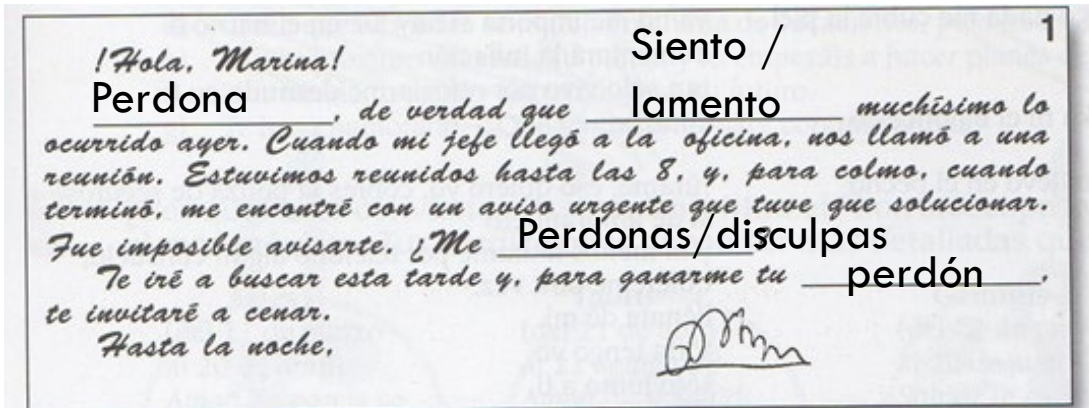 1
!Hola, Marina!
Siento /
Perdona, de verdad que lamento muchísimo lo
ocurrido ayer. Cuando mi jefe llegó a la oficina, nos llamó a una
reunión. Estuvimos reunidos hasta las 8, y, para colmo, cuando
terminó, me encontré con un aviso urgente que tuve que solucionar.
Fue imposible avisarte. ¿Me Perdonas/disculpas?
Te iré a buscar esta tarde y, para ganarme tu perdón,
te invitaré a cenar.
Hasta la noche,